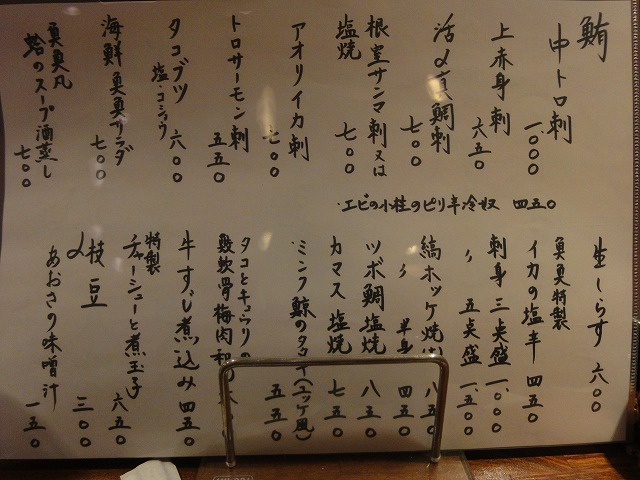 鮪
中トロ刺 一、〇〇〇
上赤身刺 六五〇
活〆真鯛刺 七〇〇
根室サンマ刺又は
塩焼 七〇〇
アオリイカ刺 七〇〇
トロサーモン刺 五五〇
タコブツ 六〇〇
塩・コショウ
海鮮魚魚サラダ 七〇〇
魚魚丸
蛤のスープ酒蒸し 七〇〇
・エビの小柱のピリ辛冷奴 四五〇
生しらす 六〇〇
魚魚特製
イカの塩辛 四五〇
刺身三点盛 一、〇〇〇
〃 五点盛 一、五〇〇
縞ホッケ焼 八五〇
〃 半身 四五〇
ツボ鯛塩焼 八五〇
カマス塩焼 七五〇
ミンク鯨のタタキ(ユッケ風) 五五〇
タコとキュウリの
鶏軟骨梅肉和
牛すじ煮込み 四五〇
特製
チャーシューと煮玉子 六五〇
〆枝豆 三〇〇
あおさの味噌汁 一五〇